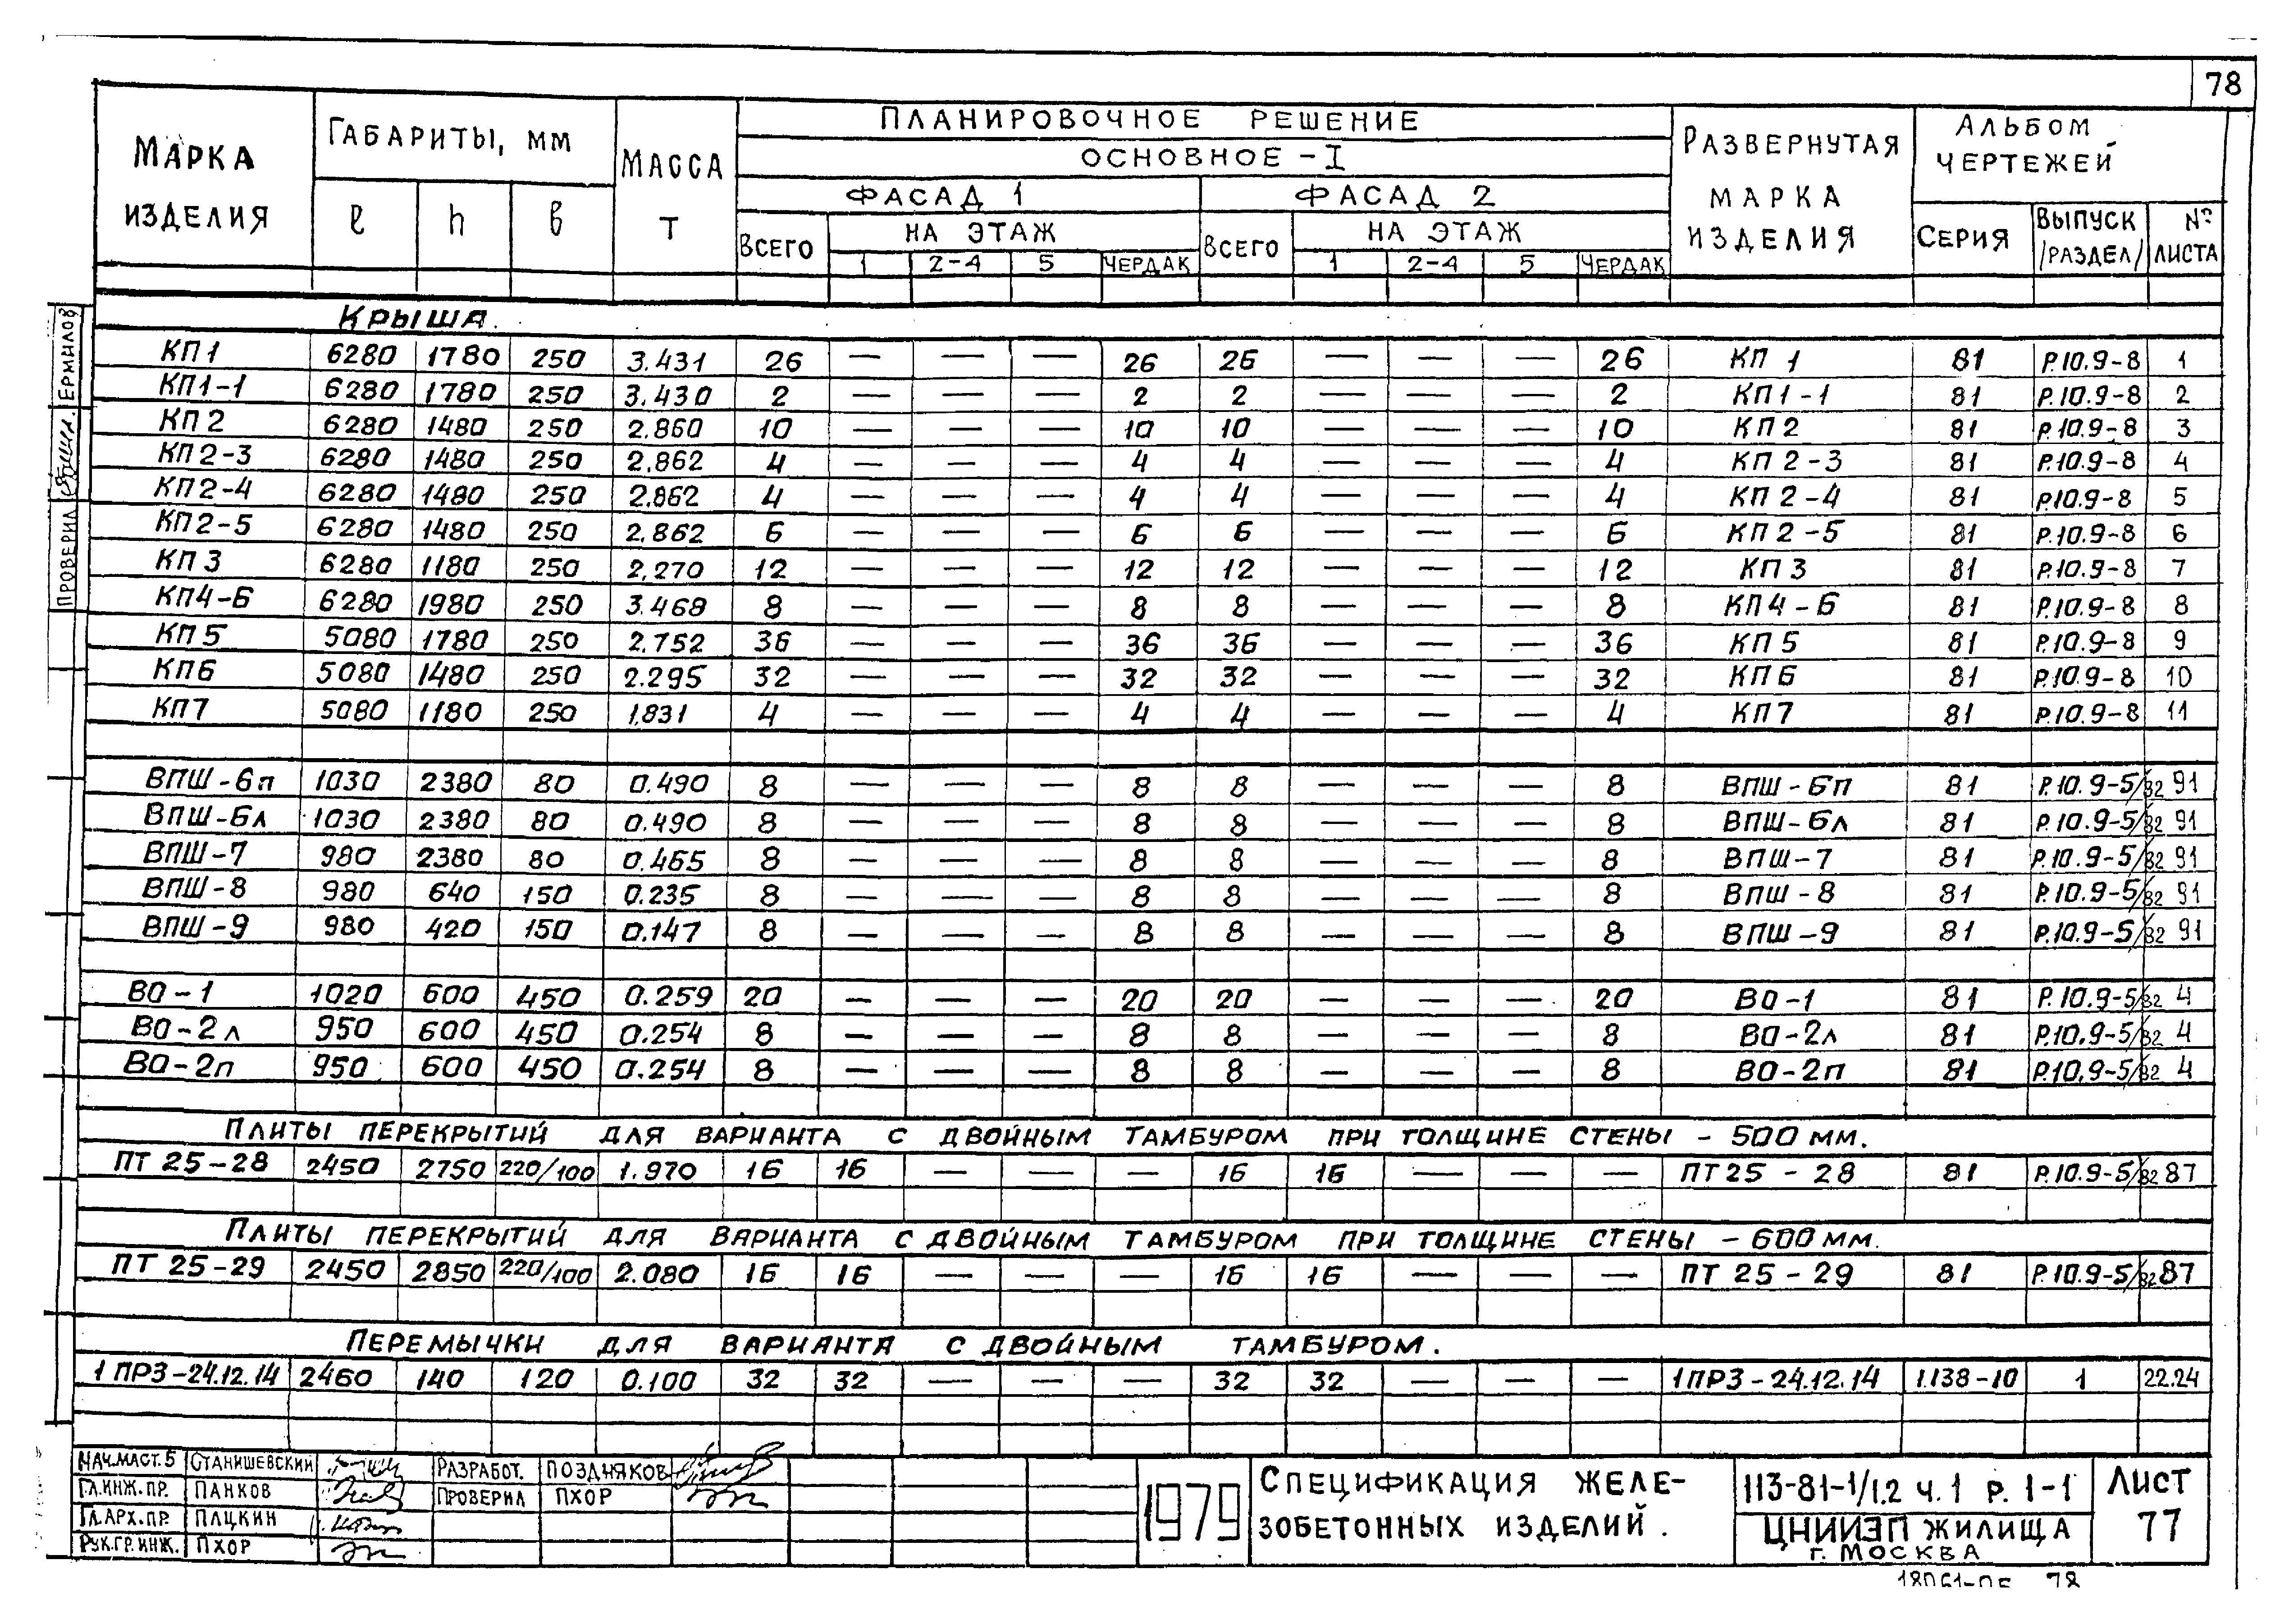 78
МАРКА ИЗДЕЛИЯ | ГАБАРИТЫ, ММ | МАССА Т | ПЛАНИРОВОЧНОЕ РЕШЕНИЕ | РАЗВЕРНУТАЯ МАРКА ИЗДЕЛИЯ | АЛЬБОМ ЧЕРТЕЖЕЙ
ОСНОВНОЕ - I
ФАСАД 1 | ФАСАД 2
ℓ | h | в | ВСЕГО | НА ЭТАЖ | ВСЕГО | НА ЭТАЖ | СЕРИЯ | ВЫПУСК /РАЗДЕЛ/ | № ЛИСТА
1 | 2-4 | 5 | ЧЕРДАК | 1 | 2-4 | 5 | ЧЕРДАК
КРЫША.
КП1 | 6280 | 1780 | 250 | 3.431 | 26 | — | — | — | 26 | 26 | — | — | — | 26 | КП 1 | 81 | Р.10.9-8 | 1
КП1-1 | 6280 | 1780 | 250 | 3.430 | 2 | — | — | — | 2 | 2 | — | — | — | 2 | КП1-1 | 81 | Р.10.9-8 | 2
КП2 | 6280 | 1480 | 250 | 2.860 | 10 | — | — | — | 10 | 10 | — | — | — | 10 | КП2 | 81 | Р.10.9-8 | 3
КП2-3 | 6280 | 1480 | 250 | 2.862 | 4 | — | — | — | 4 | 4 | — | — | — | 4 | КП2-3 | 81 | Р.10.9-8 | 4
КП2-4 | 6280 | 1480 | 250 | 2.862 | 4 | — | — | — | 4 | 4 | — | — | — | 4 | КП2-4 | 81 | Р.10.9-8 | 5
КП2-5 | 6280 | 1480 | 250 | 2.862 | 6 | — | — | — | 6 | 6 | — | — | — | 6 | КП2-5 | 81 | Р.10.9-8 | 6
КП3 | 6280 | 1180 | 250 | 2.270 | 12 | — | — | — | 12 | 12 | — | — | — | 12 | КП3 | 81 | Р.10.9-8 | 7
КП4-Б | 6280 | 1980 | 250 | 3.468 | 8 | — | — | — | 8 | 8 | — | — | — | 8 | КП4-Б | 81 | Р.10.9-8 | 8
КП5 | 5080 | 1780 | 250 | 2.752 | 36 | — | — | — | 36 | 36 | — | — | — | 36 | КП5 | 81 | Р.10.9-8 | 9
КП6 | 5080 | 1480 | 250 | 2.295 | 32 | — | — | — | 32 | 32 | — | — | — | 32 | КП6 | 81 | Р.10.9-8 | 10
КП7 | 5080 | 1180 | 250 | 1,831 | 4 | — | — | — | 4 | 4 | — | — | — | 4 | КП7 | 81 | Р.10.9-8 | 11
ВПШ-6п | 1030 | 2380 | 80 | 0.490 | 8 | — | — | — | 8 | 8 | — | — | — | 8 | ВПШ-6п | 81 | Р.10.9-5/82 | 91
ВПШ-6л | 1030 | 2380 | 80 | 0.490 | 8 | — | — | — | 8 | 8 | — | — | — | 8 | ВПШ-6л | 81 | Р.10.9-5/82 | 91
ВПШ-7 | 980 | 2380 | 80 | 0.465 | 8 | — | — | — | 8 | 8 | — | — | — | 8 | ВПШ-7 | 81 | Р.10.9-5/82 | 91
ВПШ-8 | 980 | 640 | 150 | 0.235 | 8 | — | — | — | 8 | 8 | — | — | — | 8 | ВПШ-8 | 81 | Р.10.9-5/82 | 91
ВПШ-9 | 980 | 420 | 150 | 0.147 | 8 | — | — | — | 8 | 8 | — | — | — | 8 | ВПШ-9 | 81 | Р.10.9-5/82 | 91
ВО-1 | 1020 | 600 | 450 | 0.259 | 20 | — | — | — | 20 | 20 | — | — | — | 20 | ВО-1 | 81 | Р.10.9-5/82 | 4
ВО-2л | 950 | 600 | 450 | 0.254 | 8 | — | — | — | 8 | 8 | — | — | — | 8 | ВО-2л | 81 | Р.10.9-5/82 | 4
ВО-2п | 950 | 600 | 450 | 0.254 | 8 | — | — | — | 8 | 8 | — | — | — | 8 | ВО-2п | 81 | Р.10.9-5/82 | 4
ПЛИТЫ ПЕРЕКРЫТИЙ ДЛЯ ВАРИАНТА С ДВОЙНЫМ ТАМБУРОМ ПРИ ТОЛЩИНЕ СТЕНЫ - 500 ММ.
ПТ 25-28 | 2450 | 2750 | 220/100 | 1.970 | 16 | 16 | — | — | — | 16 | 16 | — | — | — | ПТ25-28 | 81 | Р.10.9-5/82 | 87
ПЛИТЫ ПЕРЕКРЫТИЙ ДЛЯ ВАРИАНТА С ДВОЙНЫМ ТАМБУРОМ ПРИ ТОЛЩИНЕ СТЕНЫ - 600 ММ.
ПТ 25-29 | 2450 | 2850 | 220/100 | 2.080 | 16 | 16 | — | — | — | 16 | 16 | — | — | — | ПТ 25-29 | 81 | Р.10.9-5/82 | 87
ПЕРЕМЫЧКИ ДЛЯ ВАРИАНТА С ДВОЙНЫМ ТАМБУРОМ.
1ПР3-24.12.14 | 2460 | 140 | 120 | 0.100 | 32 | 32 | — | — | — | 32 | 32 | — | — | — | 1ПР3-24.12.14 | 1.138-10 | 1 | 22.24
ПРОВЕРИЛ ЕРМИЛОВ
НАЧ.МАСТ.5 СТАНИШЕВСКИЙ РАЗРАБОТ. ПОЗДНЯКОВ
ГЛ.ИНЖ.ПР. ПАНКОВ ПРОВЕРИЛ ПХОР
ГЛ.АРХ.ПР. ПАЦКИН
РУК.ГР.ИНЖ. ПХОР
1979
СПЕЦИФИКАЦИЯ ЖЕЛЕ-
ЗОБЕТОННЫХ ИЗДЕЛИЙ.
113-81-1/1.2 Ч.1 Р. 1-1
ЦНИИЭП ЖИЛИЩА
Г. МОСКВА
ЛИСТ
77
18061-05 78